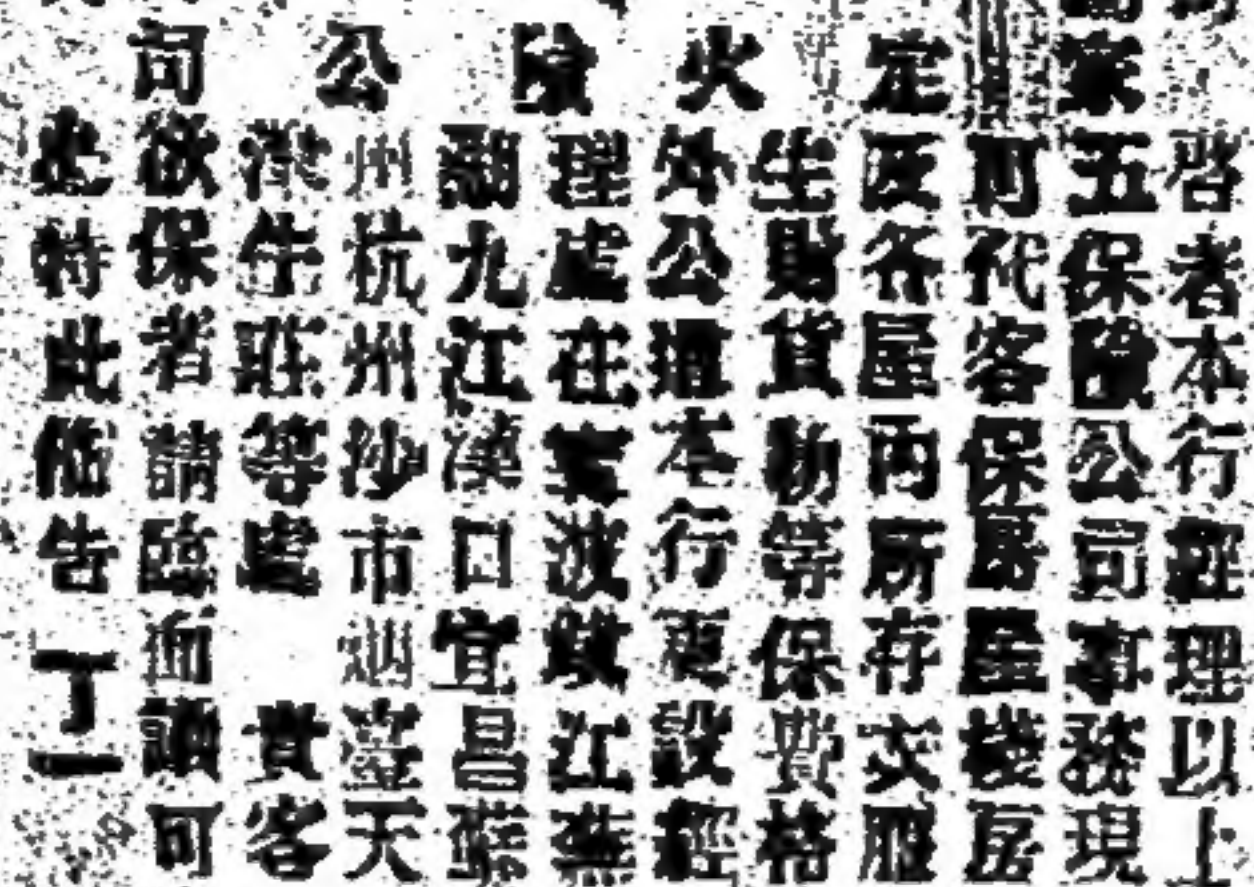 定火險公司
啓者本行經理以上
五保險公司事務現
可代客保房屋棧房
及各屋內所存衣服
生財貨物等保費格
外公道本行更設經
理處在寗波鎮江蕪
湖九江漢口宜昌蘇
州杭州沙市烟臺天
津牛莊等處 貴客
欲保者請臨面議可
也特此佈告